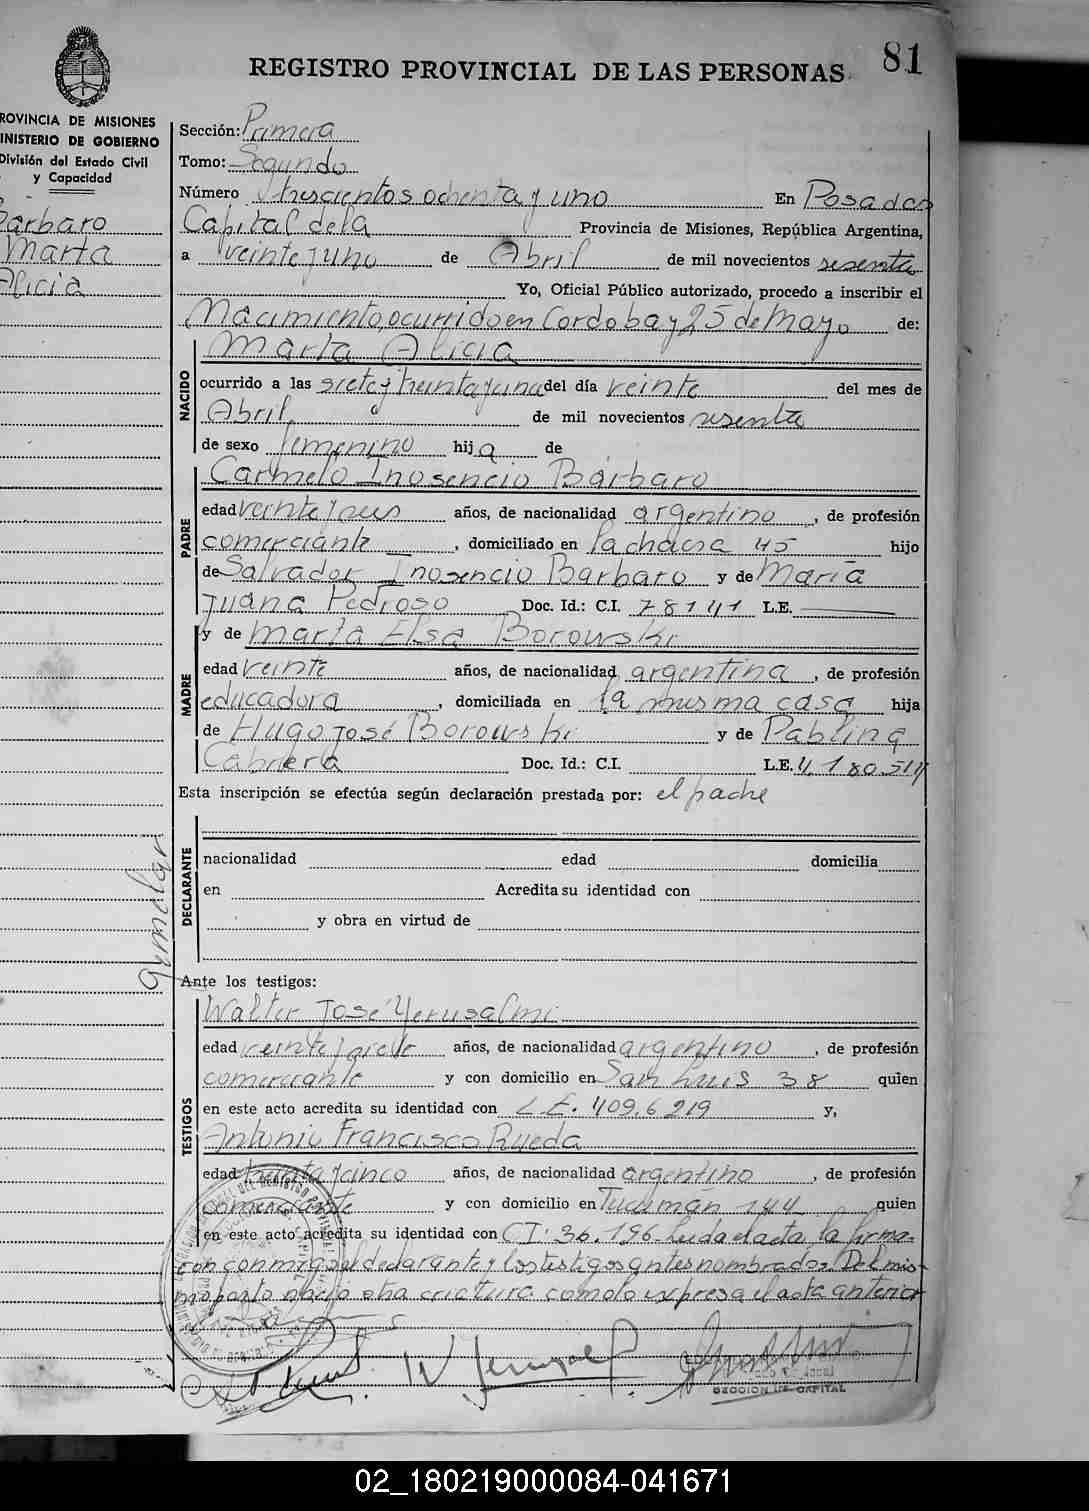 81
REGISTRO PROVINCIAL DE LAS PERSONAS
ROVINCIA DE MISIONES
INISTERIO DE GOBIERNO
División del Estado Civil
y Capacidad
Bárbaro
Marta
Alicia
Gemelar
Sección: Primera
Tomo: Segundo
Número trescientos ochenta y uno En Posadas
Capital de la Provincia de Misiones, República Argentina,
a veinte y uno de Abril de mil novecientos sesenta
Yo, Oficial Público autorizado, procedo a inscribir el
Nacimiento ocurrido en Cordoba y 25 de Mayo de:
NACIDO
Marta Alicia
ocurrido a las siete y treinta y una del día veinte del mes de
Abril de mil novecientos sesenta
de sexo femenino hija de
PADRE
Carmelo Inosencio Bárbaro
edad veinte y años, de nacionalidad argentino, de profesión
comerciante, domiciliado en la chacra 45 hijo
de Salvador Inosencio Bárbaro y de María
Juana Pedroso Doc. Id.: C.I. 78141 L.E.
MADRE
y de Marta Elsa Borowski
edad veinte años, de nacionalidad argentina, de profesión
educadora, domiciliada en la misma casa hija
de Hugo José Borowski y de Pablina
Cabrera Doc. Id.: C.I. L.E. 4.180.514
Esta inscripción se efectúa según declaración prestada por: el padre
DECLARANTE
nacionalidad edad domicilia
en Acredita su identidad con
y obra en virtud de
Ante los testigos:
TESTIGOS
Walter José Yerusalmi
edad veinte y siete años, de nacionalidad argentino, de profesión
comerciante y con domicilio en San Luis 38 quien
en este acto acredita su identidad con L.E. 409.6219 y,
Antonio Francisco Rueda
edad treinta y cinco años, de nacionalidad argentino, de profesión
comerciante y con domicilio en Tucumán 144 quien
en este acto acredita su identidad con C.I. 36.196 Leida el acta, la firma-
ron conmigo el declarante y los testigos antes nombrados. Del mis-
mo parto nació otra criatura como lo expresa el acta anterior
SECCION 1ra CAPITAL
02_180219000084-041671